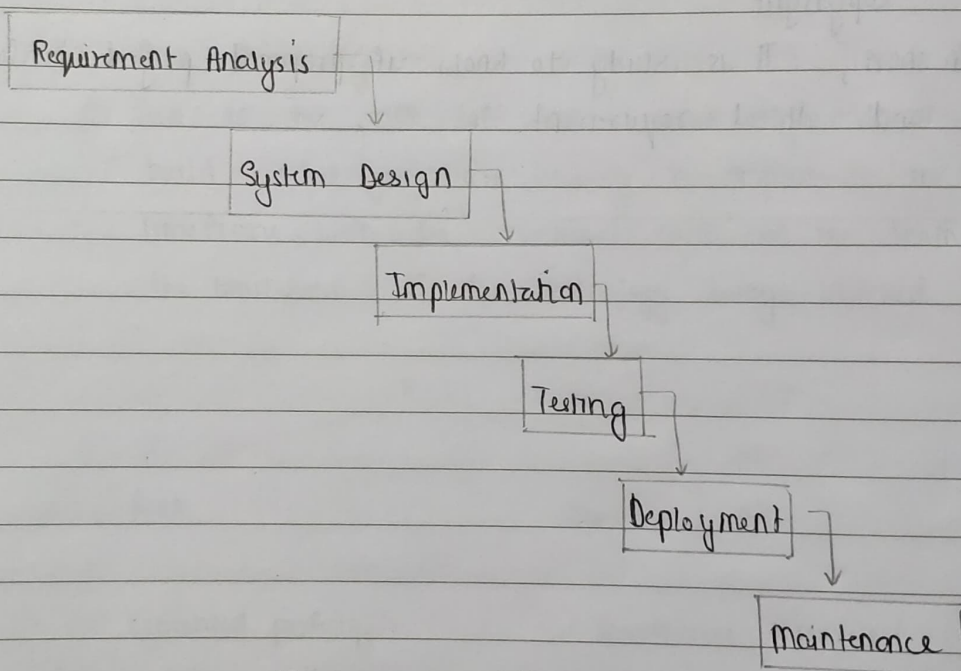 Requirement Analysis
System Design
Implementation
Testing
Deployment
Maintenance